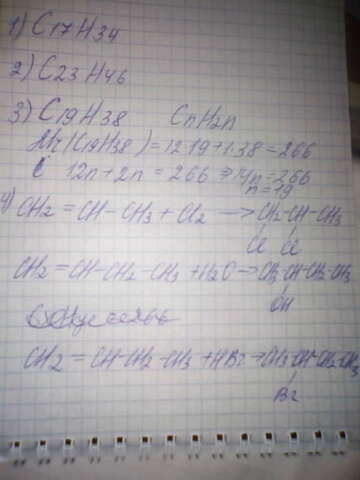 1) C17H34
2) C23H46
3) C19H38 CnH2n
Mr(C19H38) = 12·19+1·38 = 266
12n+2n = 266 ⇒ 14n = 266
n = 19
4) CH2 = CH-CH3 + Cl2 → CH2-CH-CH3
Cl Cl
CH2 = CH-CH2-CH3 + H2O → CH3-CH-CH2-CH3
OH
CH2 = CH-CH2-CH3 + HBr → CH3-CH-CH2-CH3
Br